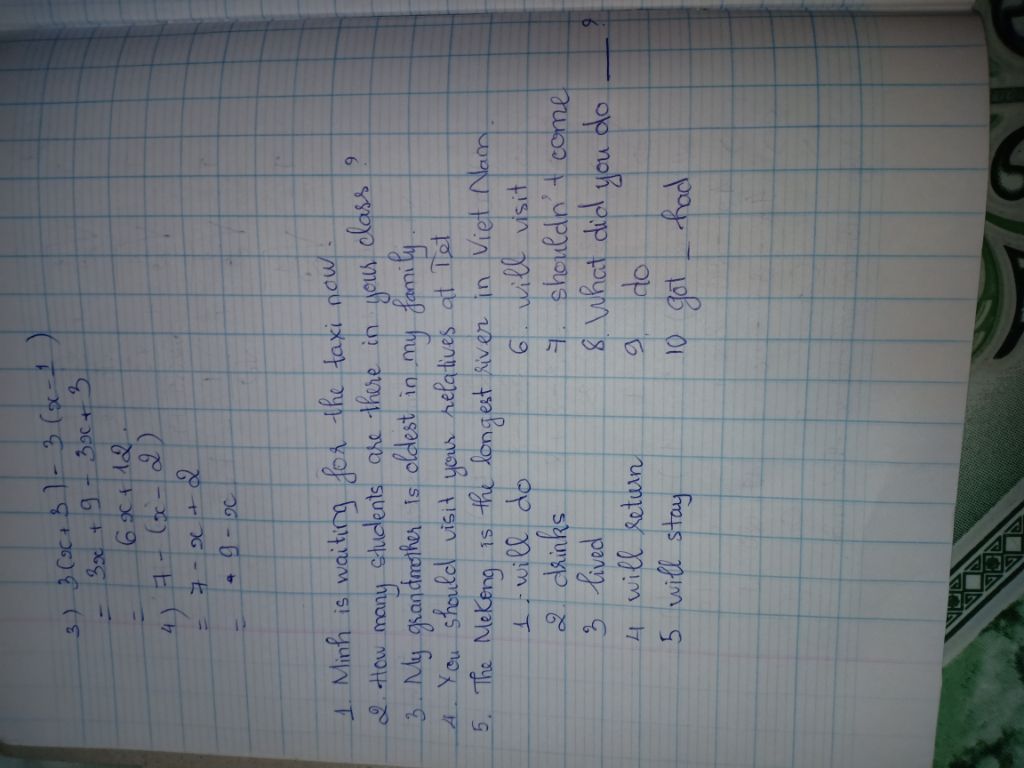 3) 3(x+3) - 3(x-1)
= 3x + 9 - 3x + 3
= 6x + 12.
4) 7 - (x - 2)
= 7 - x + 2
= 9 - x
1. Minh is waiting for the taxi now.
2. How many students are there in your class ?
3. My grandmother is oldest in my family.
4. You should visit your relatives at Tet
5. The MeKong is the longest river in Viet Nam.
1. will do
2 drinks
3 lived
4 will return
5 will stay
6. will visit
7. shouldn't come
8. What did you do ___ ?
9. do
10 got _ had